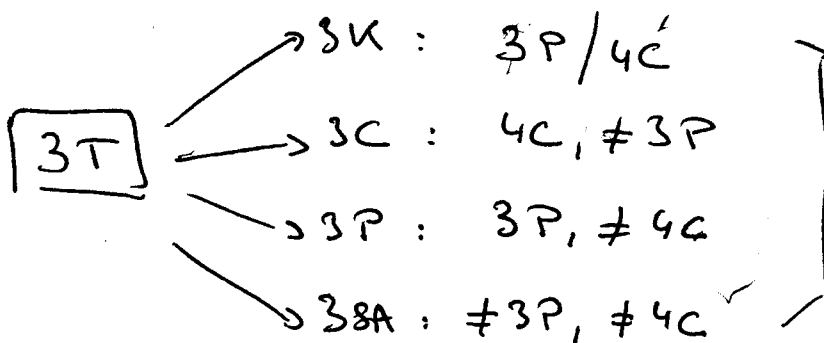 3T
→ 3K : 3P/4C
→ 3C : 4C, ≠3P
→ 3P : 3P, ≠ 4C
→ 3SA : ≠3P, ≠4C ✓